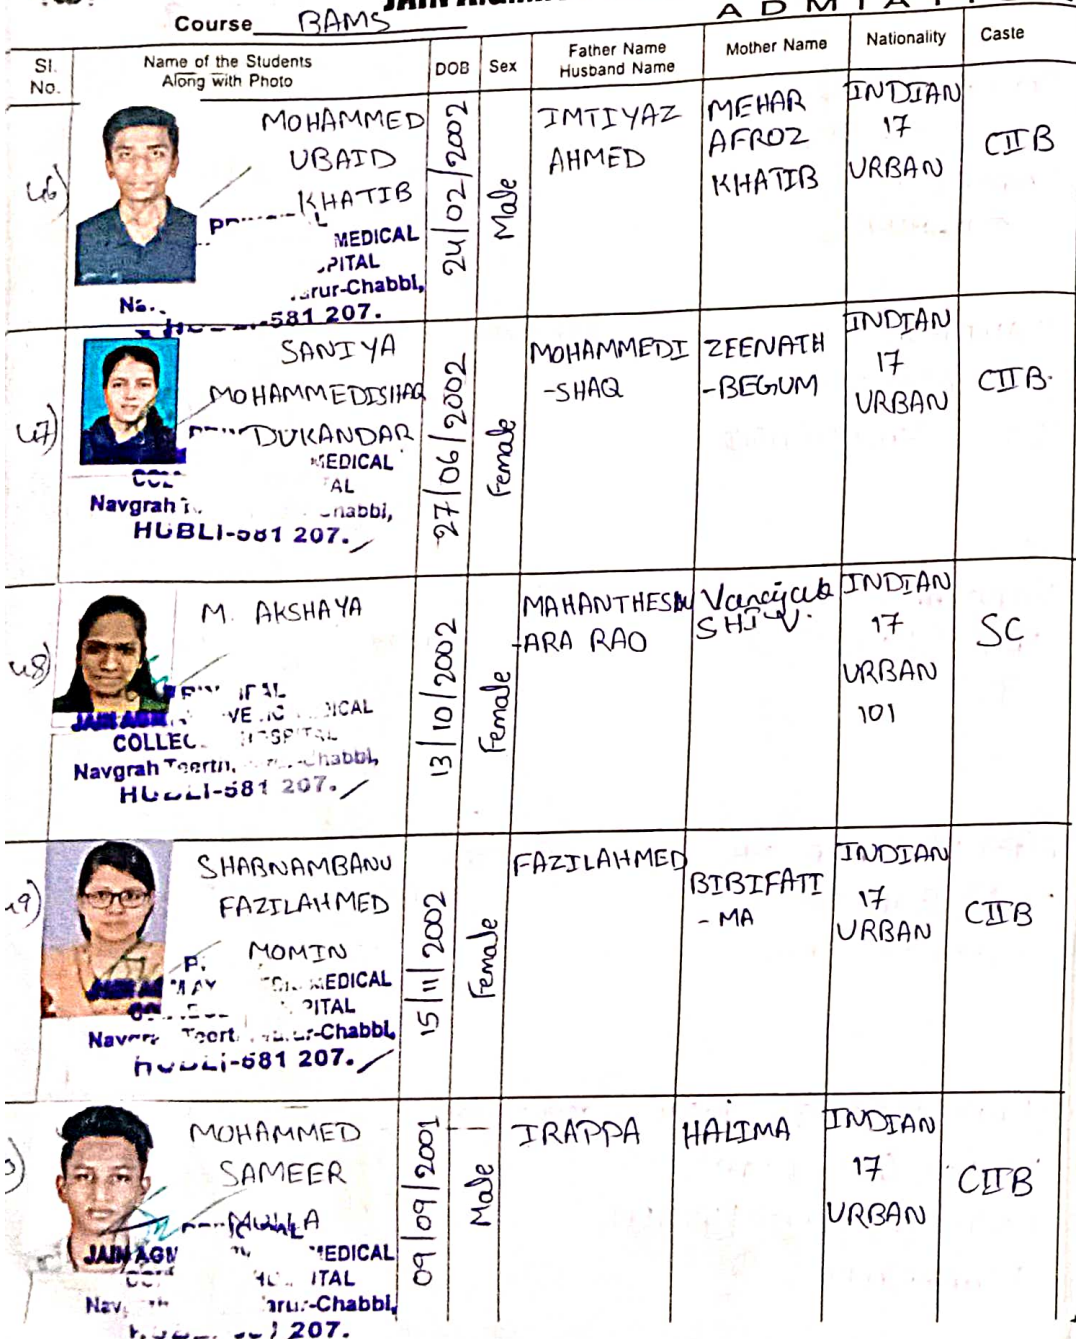 Course BAMS
Sl. No.
Name of the Students Along with Photo
DOB
Sex
Father Name Husband Name
Mother Name
Nationality
Caste
46)
MOHAMMED
UBAID
KHATIB
MEDICAL
Chabbi,
581 207.
24/02/2002
Male
IMTIYAZ
AHMED
MEHAR
AFROZ
KHATIB
INDIAN
17
URBAN
CIIB
47)
SANIYA
MOHAMMEDISHAQ
DUKANDAR
MEDICAL
Navgrah
HUBLI-581 207.
27/06/2002
Female
MOHAMMEDI
-SHAQ
ZEENATH
-BEGUM
INDIAN
17
URBAN
CIIB
48)
M. AKSHAYA
Navgrah
Chabbi,
581 207.
13/10/2002
Female
ARA RAO
INDIAN
17
URBAN
101
SC
SHABNAMBANU
FAZILAHMED
MOMIN
MEDICAL
-Chabbi,
581 207.
15/11/2002
Female
FAZILAHMED
BIBIFATI
- MA
INDIAN
17
URBAN
CIIB
MOHAMMED
SAMEER
MULLA
JAIN AGM
MEDICAL
-Chabbi,
207.
09/09/2001
Male
IRAPPA
HALIMA
INDIAN
17
URBAN
CIIB